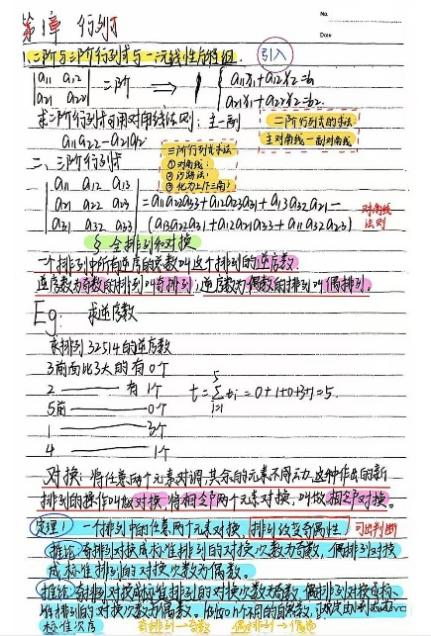 第1章 行列式
No.
Date
一、二阶与三阶行列式与一元线性方程组. 引入
a11 a12
a21 a22 二阶 ⇒ { a11x1+a12x2=b1
a21x1+a22x2=b2.
求二阶行列式可用对角线法则: 主-副
a11a22-a21a12
二阶行列式的求法
主对角线-副对角线
三阶行列式求法
①对角线:
②沙路法:
③化为上(下三角)
二、三阶行列式
a11 a12 a13
a21 a22 a23
a31 a32 a33
=a11a22a33+a12a23a31+a13a32a21-
(a13a22a31+a12a21a33+a11a32a23)
对角线法则
§ 全排列和对换
一个排列中所有逆序的总数叫这个排列的逆序数.
逆序数为奇数的排列叫奇排列; 逆序数为偶数的排列叫偶排列.
Eg: 求逆序数
求排列32514的逆序数
3前面比3大的有0个
2 —— 有1个
5前 —— 0个
1 —— 3个
4 —— 1个
t=∑ti=0+1+0+3+1=5.
对换: 将任意两个元素对调,其余的元素不动,这种作出的新
排列的操作叫做对换,将相邻两个元素对换,叫做相邻对换.
定理1 一个排列中的任意两个元素对换,排列改变奇偶性 可出判断
推论 奇排列对换成标准排列的对换次数为奇数,偶排列对换
成标准排列的对换次数为偶数.
推论: 奇排列对换成标准排列的对换次数为奇数 偶排列对换
排列的对换次数为偶数. n个不同的自然数,
标准次序 奇排列→奇数 偶排列→偶数